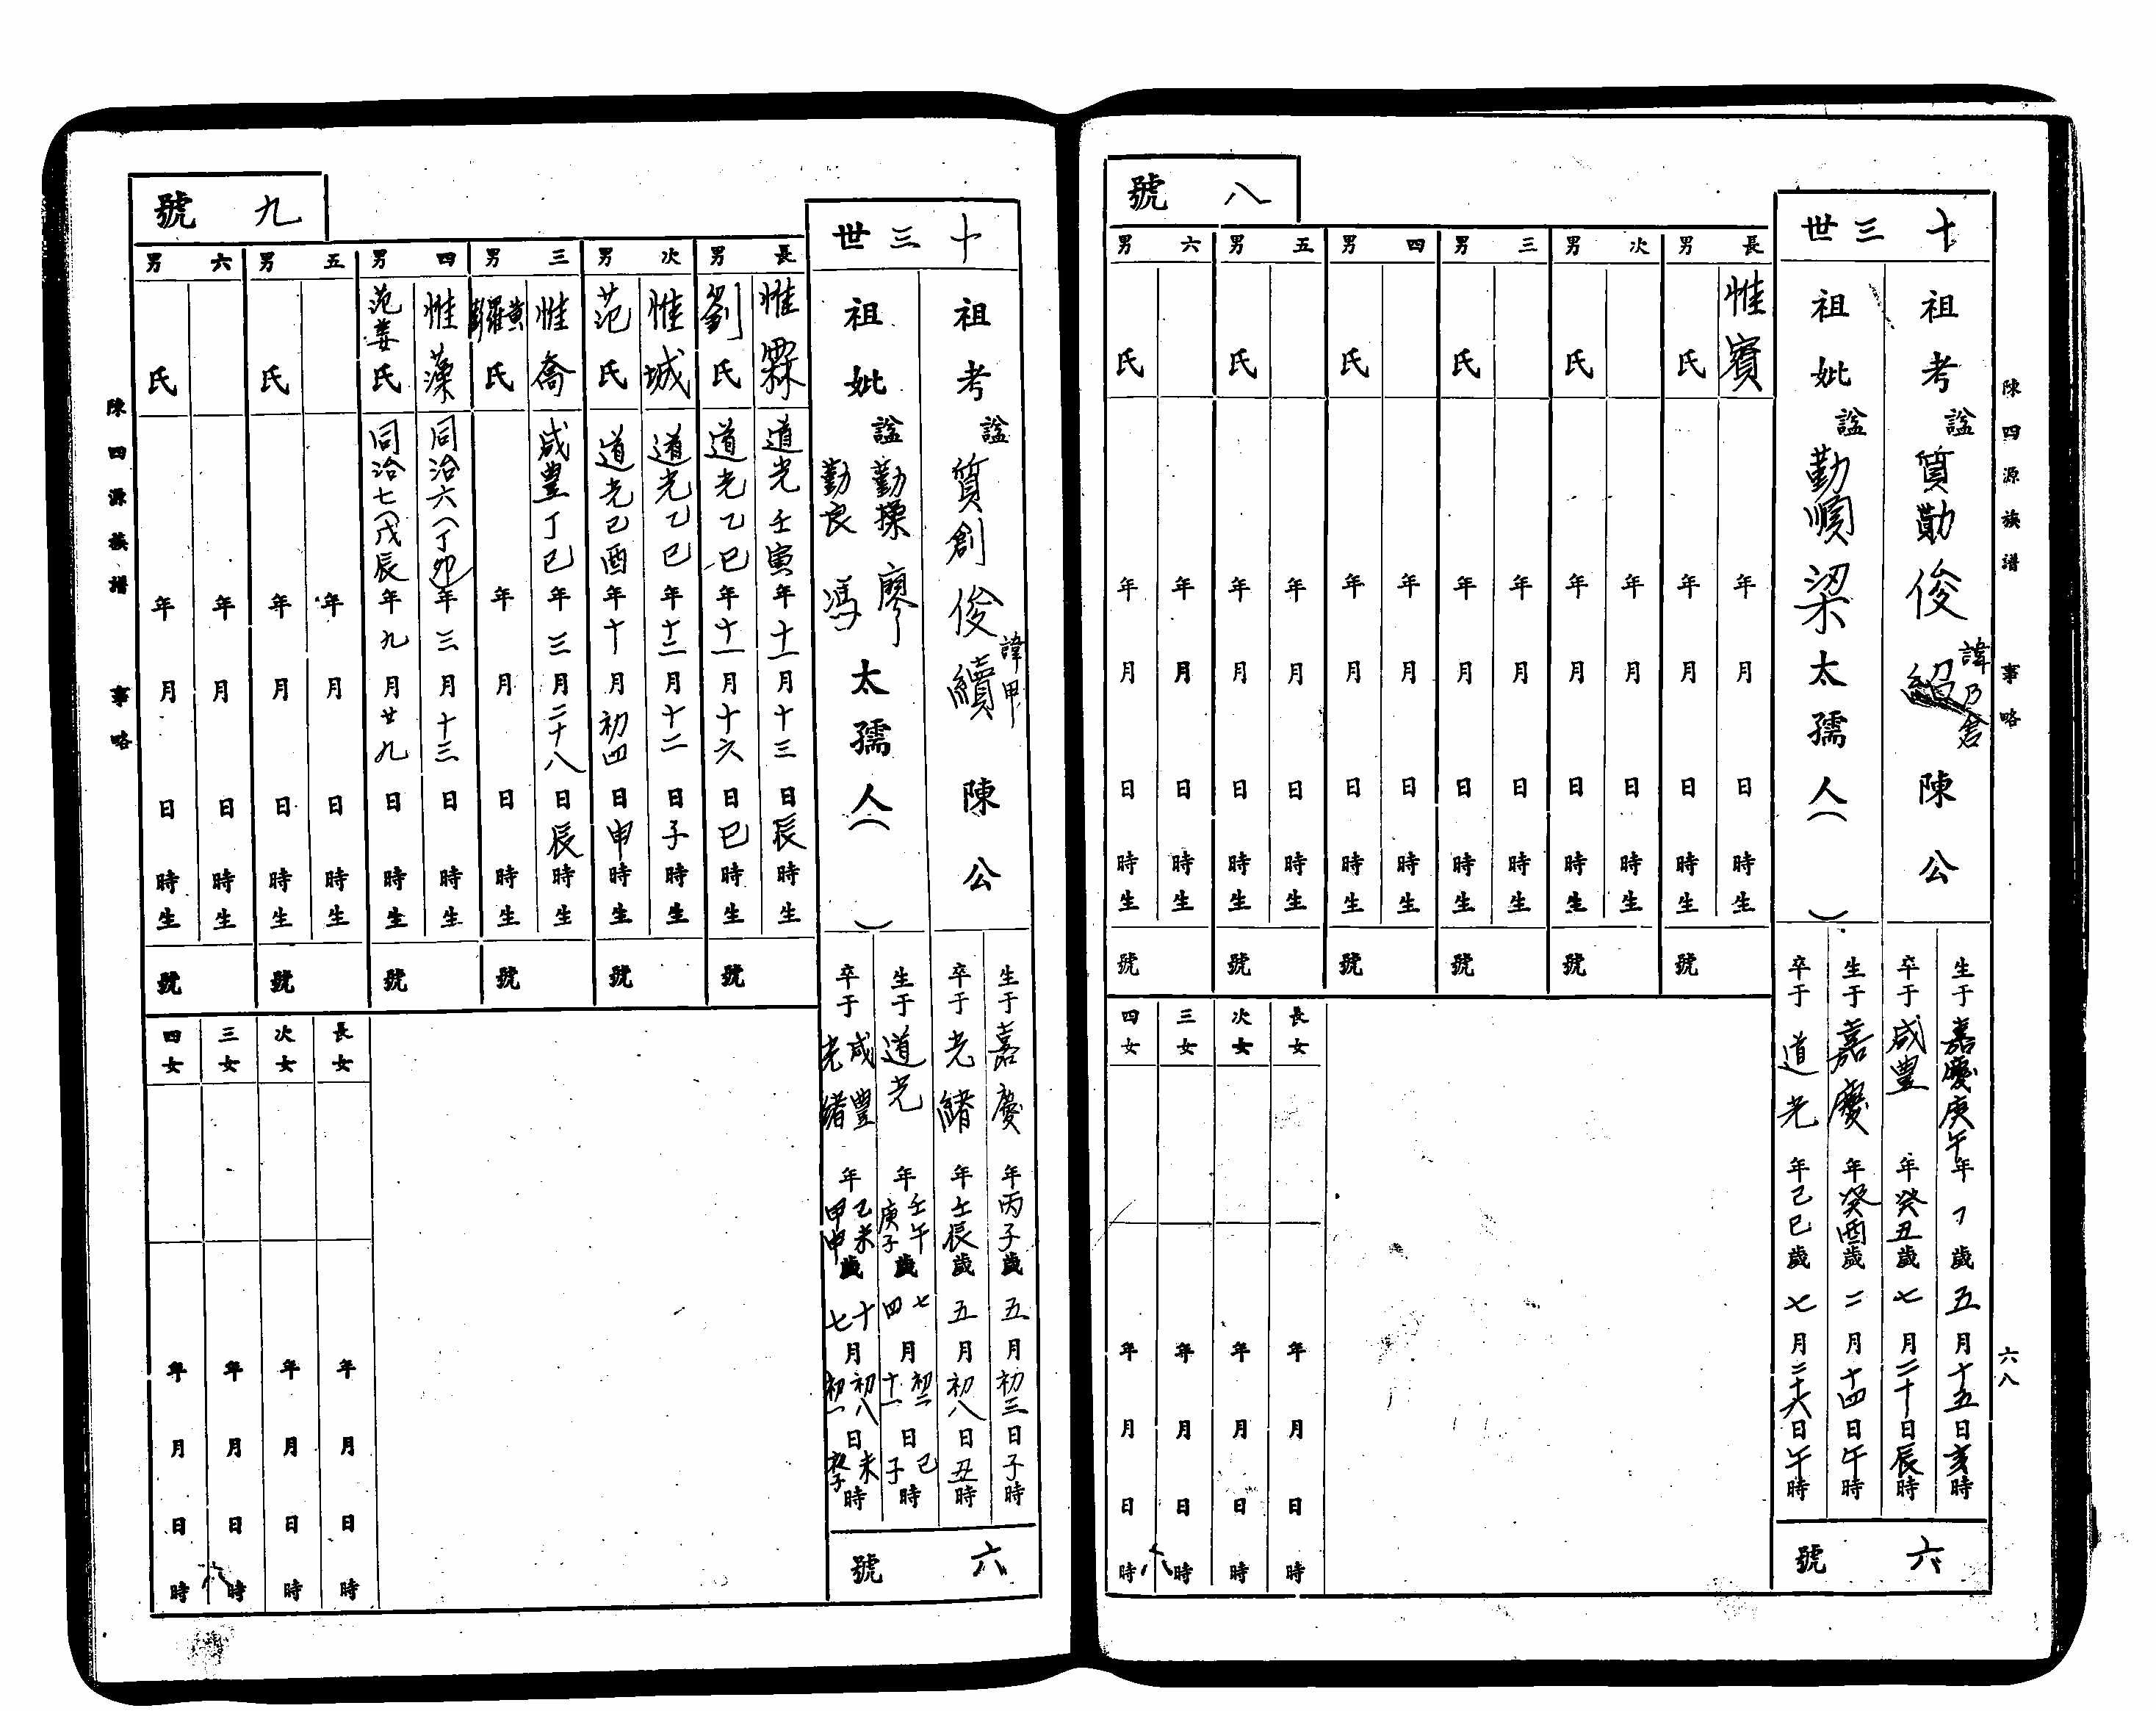 陳四源族譜 事略
六八
八號
十三世
祖考 諡質勤俊 諱乃倉 陳公
祖妣 諡勤順梁太孺人( )
生于嘉慶庚午年 歲五月十五日亥時
卒于咸豐年癸丑歲七月二十日辰時
生于嘉慶年癸酉歲二月十四日午時
卒于道光年己巳歲七月二十六日午時
六號
長男 惟賓 年月日時生
氏 年月日時生
號
次男 年月日時生
氏 年月日時生
號
三男 年月日時生
氏 年月日時生
號
四男 年月日時生
氏 年月日時生
號
五男 年月日時生
氏 年月日時生
號
六男 年月日時生
氏 年月日時生
號
長女 年月日時
次女 年月日時
三女 年月日時
四女 年月日時
九號
十三世
祖考 諡質創俊續 諱甲 陳公
祖妣 諡勤操廖 勤良馮 太孺人( )
生于嘉慶年丙子歲五月初三日子時
卒于光緒年壬辰歲五月初八日丑時
生于道光年壬午 庚子歲七 四月初二 十一日巳 子時
卒于咸豐 光緒年己未 甲申歲十 七月初八 初一日未時
六號
長男 惟霖 道光壬寅年十一月十三日辰時生
劉氏 道光乙巳年十一月十六日巳時生
號
次男 惟城 道光乙巳年十二月十二日子時生
范氏 道光己酉年十月初四日申時生
號
三男 惟喬 咸豐丁巳年三月二十八日辰時生
黃羅彭氏 年月日時生
號
四男 惟藻 同治六(丁卯)年三月十三日時生
范姜氏 同治七(戊辰)年九月廿九日時生
號
五男 年月日時生
氏 年月日時生
號
六男 年月日時生
氏 年月日時生
號
長女 年月日時
次女 年月日時
三女 年月日時
四女 年月日時
陳四源族譜 事略